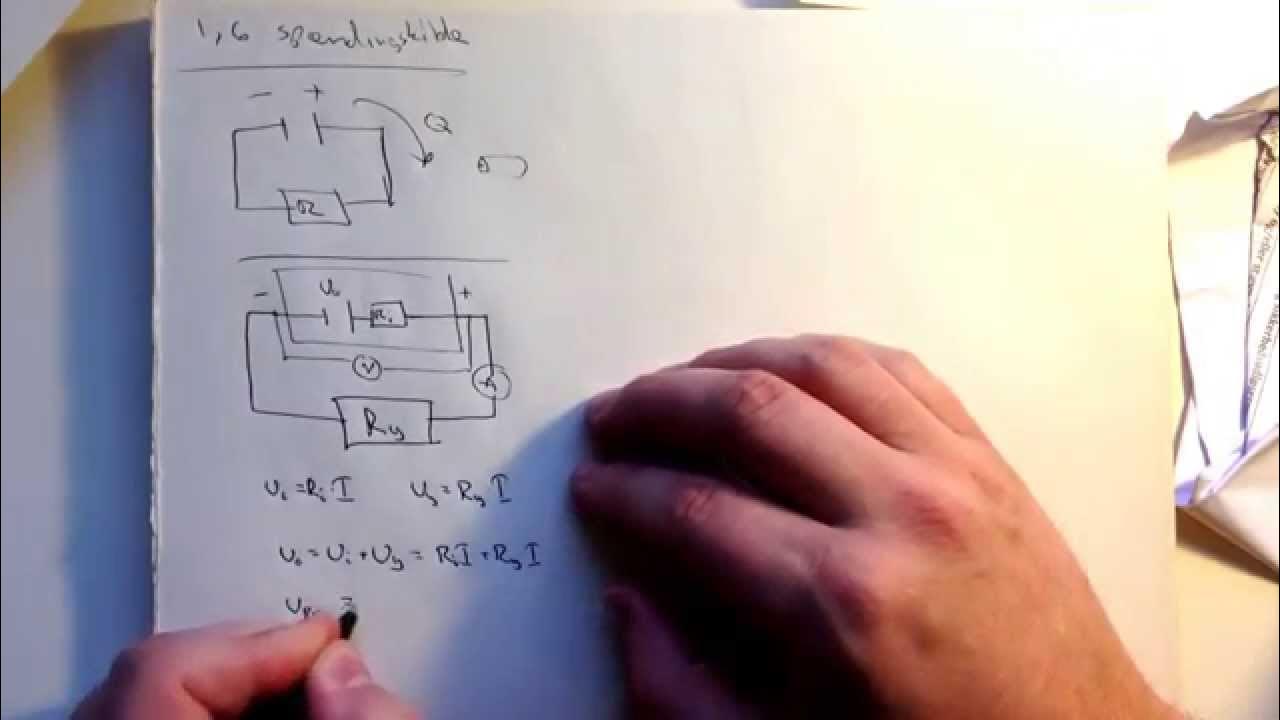 1,6 spændingskilde
- +
Q
R
U₀
- +
Rᵢ
V
A
Rᵧ
Uᵢ = Rᵢ · I Uᵧ = Rᵧ I
U₀ = Uᵢ + Uᵧ = Rᵢ I + Rᵧ I